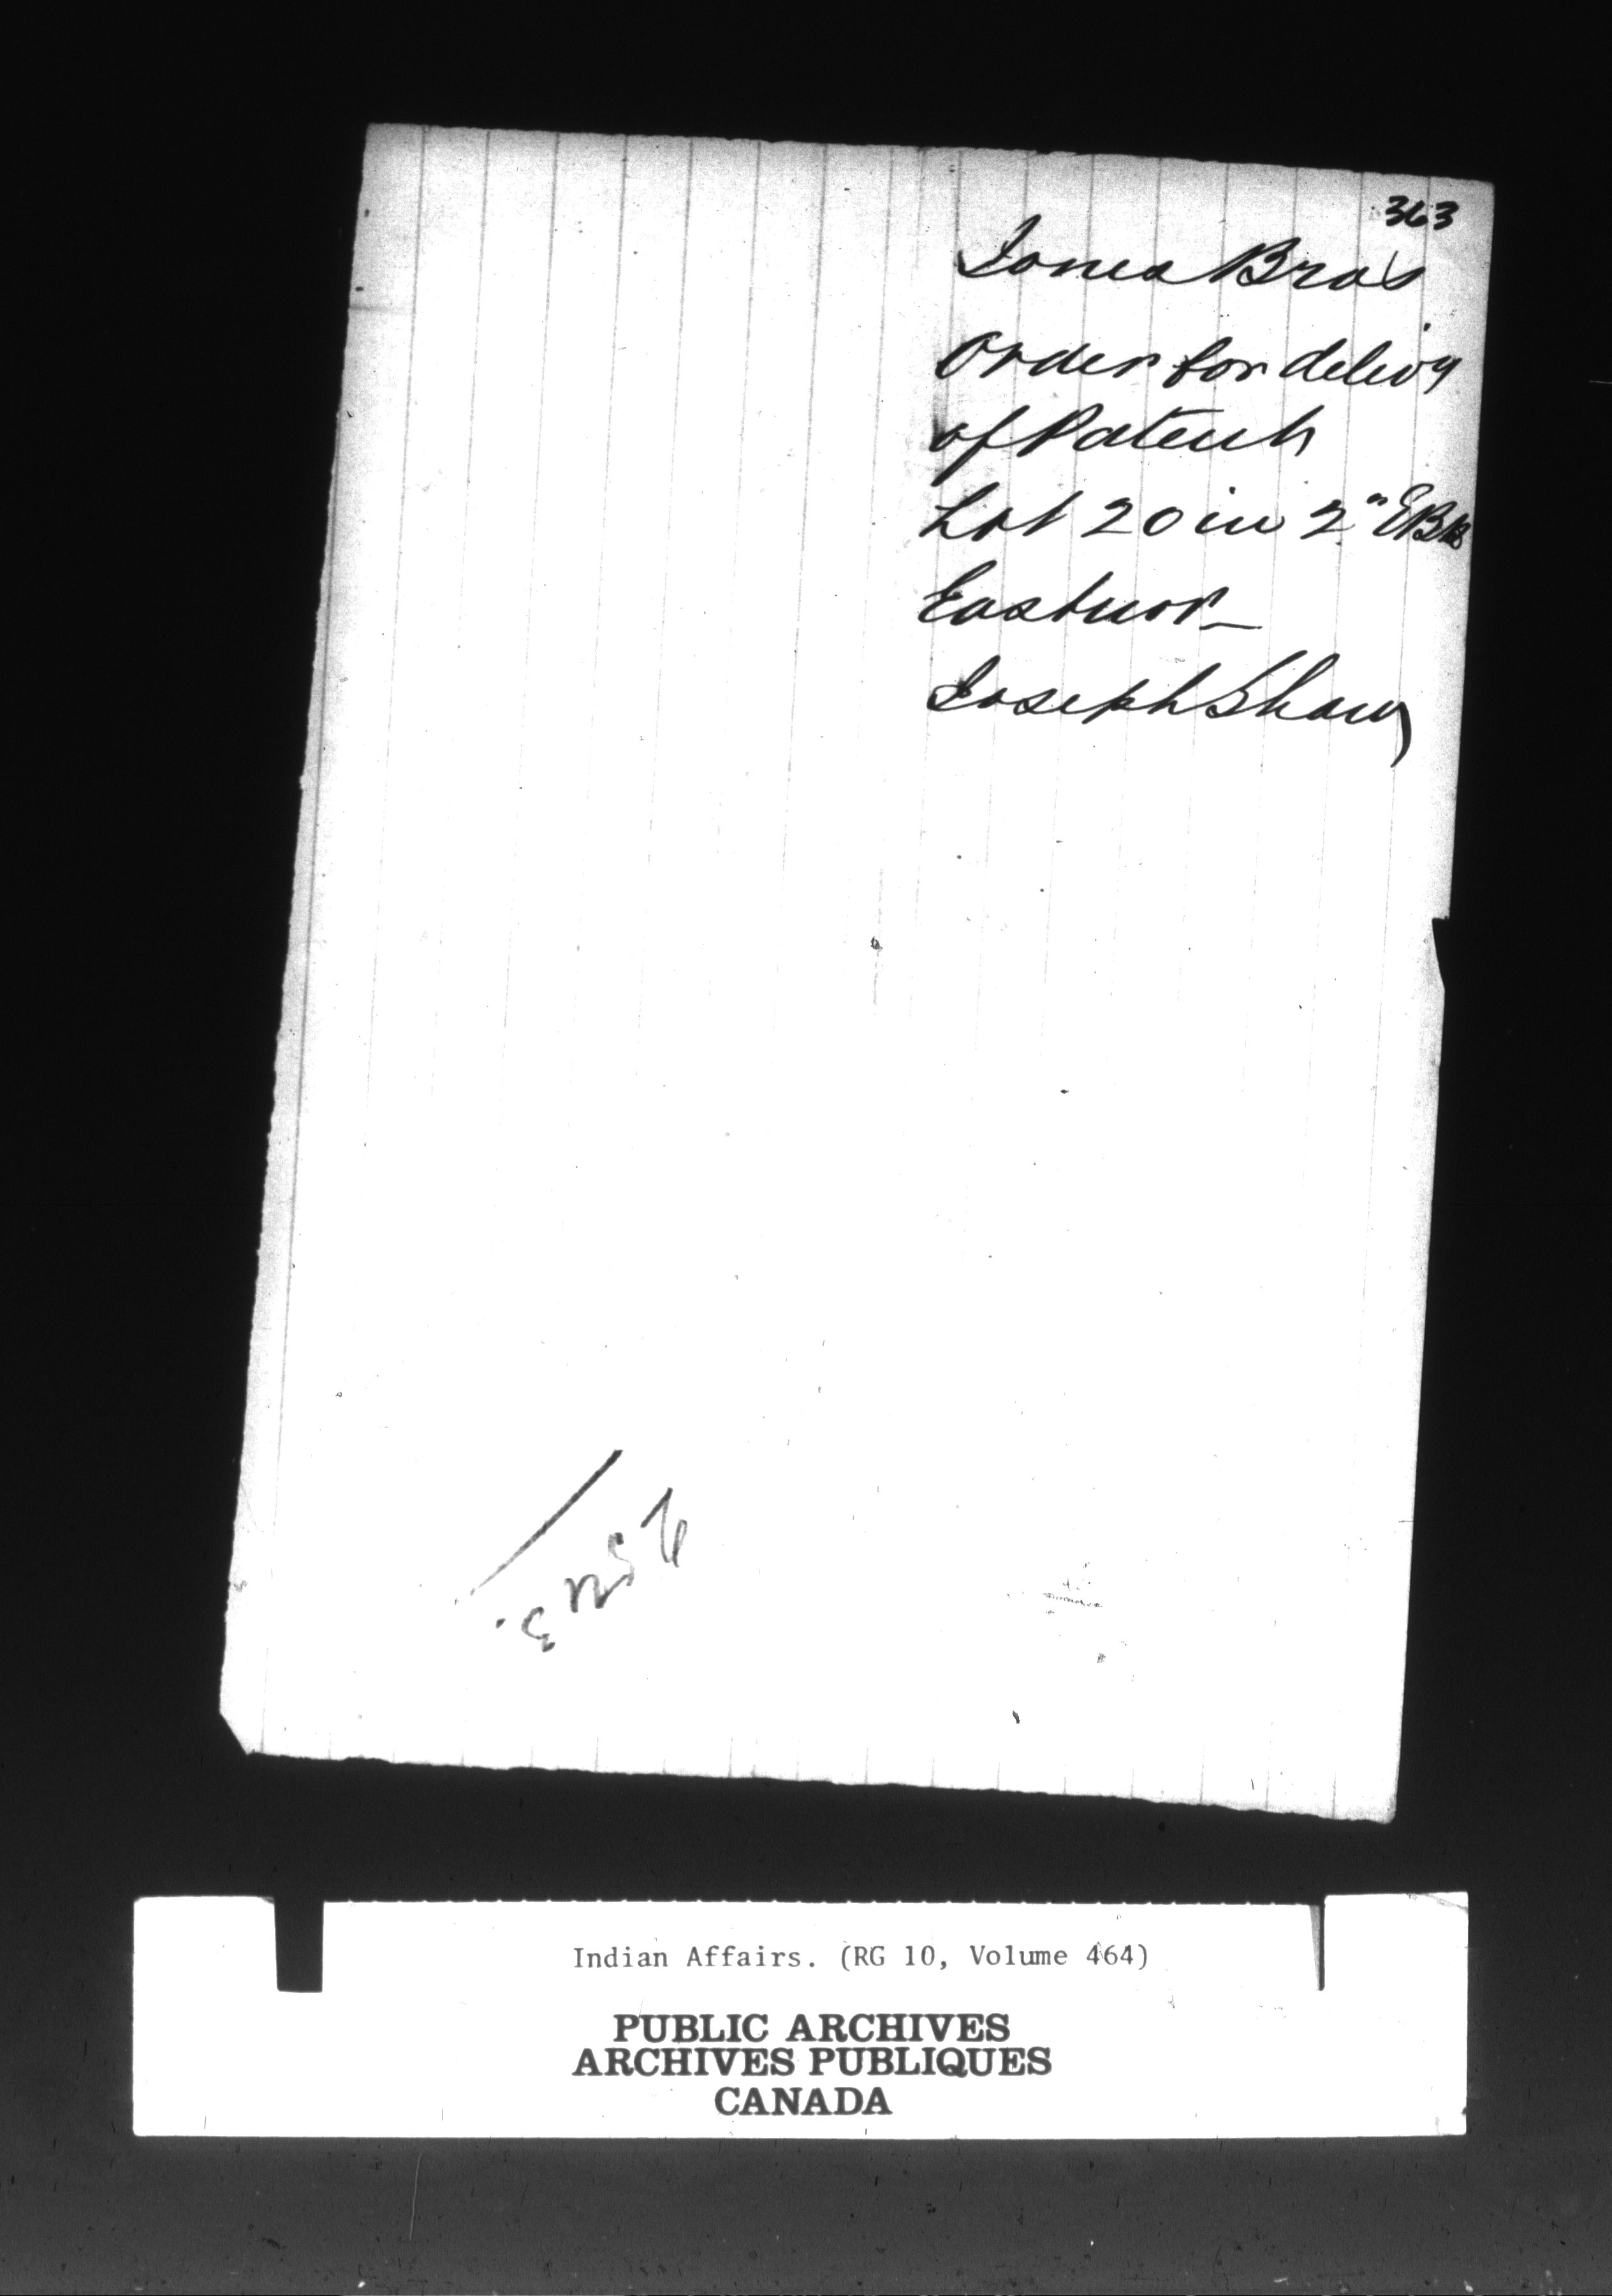 363
Jones Bros
Order for delivy
of Patent
Lot 20 in 2" EBR
Eastnor_
Joseph Shaw
Indian Affairs. (RG 10, Volume 464)
PUBLIC ARCHIVES
ARCHIVES PUBLIQUES
CANADA